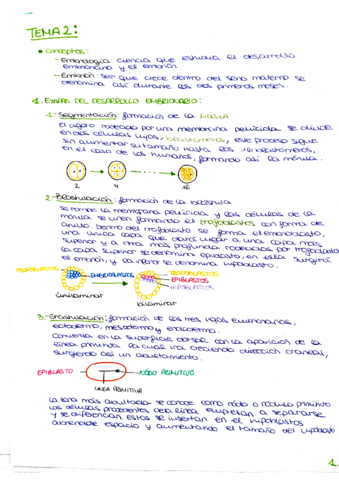 TEMA 2:
• Conceptos:
- Embriología: ciencia que estudia el desarrollo
embrionario y el embrión
- Embrión: ser que crece dentro del seno materno se
denomina así durante los dos primeros meses.
1. Etapas del desarrollo embrionario:
1- Segmentación: formación de la mórula
El cigoto rodeado por una membrana pelúcida se divide
en dos células hijas, blastómeros, este proceso sigue
sin aumentar su tamaño hasta los 16 blastómeros,
en el caso de los humanos, formando así la mórula.
2 4 16
2- Blastulación: formación de la blástula
Se rompe la membrana pelúcida y las células de la
mórula se unen formando el trofoblastos con forma de
anillo. Dentro del trofoblasto se forma el embrioblasto,
una única capa que dará lugar a una capa más
superior y a otra más profunda rodeados por trofoblasto
la capa superior se denomina epiblasto, en ella surgirá
el embrión, y la inferior se denomina hipoblasto.
TROFOBLASTOS EMBRIOBLASTOS TROFOBLASTOS
EPIBLASTOS
HIPOBLASTOS
Unilaminar bilaminar
3- Gastrulación: formación de las tres hojas embrionarias,
ectodermo, mesodermo y endodermo.
Comienza en la superficie dorsal con la aparición de la
línea primitiva, la cual irá creciendo dirección craneal,
surgiendo así un abultamiento.
EPIBLASTO NODO PRIMITIVO
LINEA PRIMITIVA
La zona más abultada se conoce como nodo o nódulo primitivo.
Las células procedentes de la línea empiezan a separarse
y se diferencian estas se insertan en el hipoblastos
abriéndole espacio y aumentando el tamaño del hipoblasto
1.